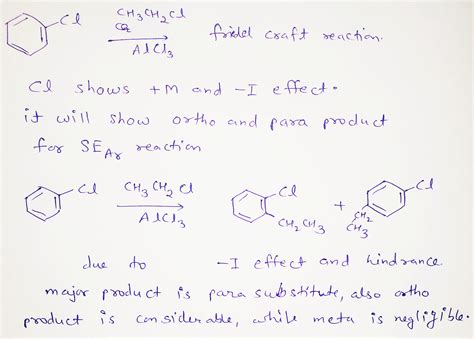 Cl CH3CH2Cl
AlCl3 friedel craft reaction.
Cl shows +M and -I effect.
it will show ortho and para product
for SEAr reaction
Cl CH3CH2Cl Cl Cl
AlCl3 CH2CH3 + CH2
CH3
due to -I effect and hindrance
major product is para substitute, also ortho
product is considerable, while meta is negligible.